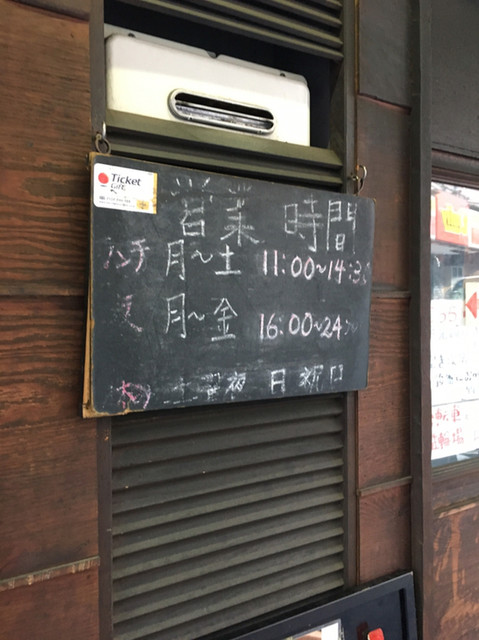 Ticket
営業時間
ランチ 月〜土 11:00〜14:30
夜 月〜金 16:00〜24:
㊡ 土曜夜 日 祝日
転車
駐輪場